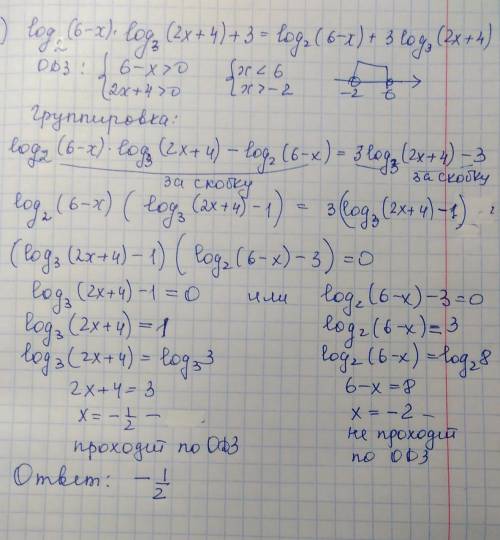 ) log₂(6-x)·log₃(2x+4)+3 = log₂(6-x)+3log₃(2x+4)
ОДЗ: { 6-x>0 { x<6
2x+4>0 x>-2 -2 6
Группировка:
log₂(6-x)·log₃(2x+4)-log₂(6-x) = 3log₃(2x+4)-3
за скобку за скобку
log₂(6-x)(log₃(2x+4)-1) = 3(log₃(2x+4)-1)
(log₃(2x+4)-1)(log₂(6-x)-3)=0
log₃(2x+4)-1=0 или log₂(6-x)-3=0
log₃(2x+4)=1 log₂(6-x)=3
log₃(2x+4)=log₃3 log₂(6-x)=log₂8
2x+4=3 6-x=8
x=-1/2 - x=-2 -
проходит по ОДЗ не проходит
по ОДЗ
Ответ: -1/2